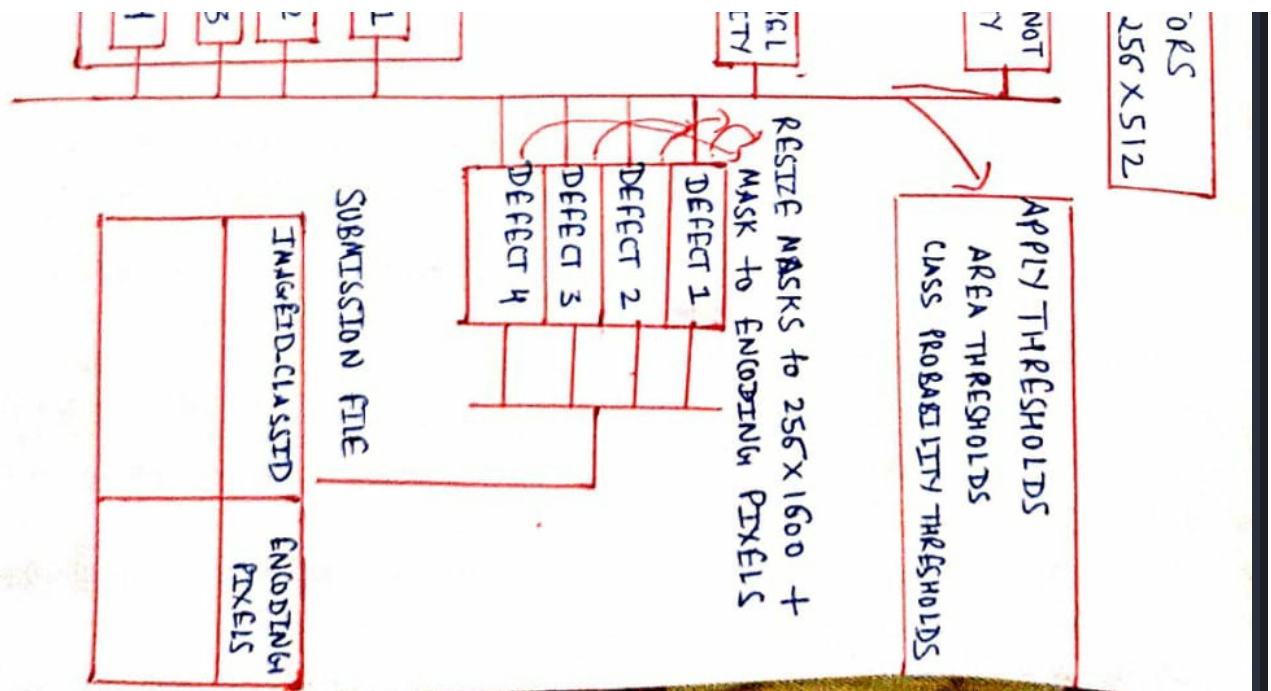 TORS
256 X 512
NOT
TY
REL
ETY
1
2
3
4
APPLY THRESHOLDS
AREA THRESHOLDS
CLASS PROBABILITY THRESHOLDS
RESIZE MASKS to 256X1600 +
MASK to ENCODING PIXELS
DEFECT 1
DEFECT 2
DEFECT 3
DEFECT 4
SUBMISSION FILE
IMAGEID_CLASSID
ENCODING
PIXELS